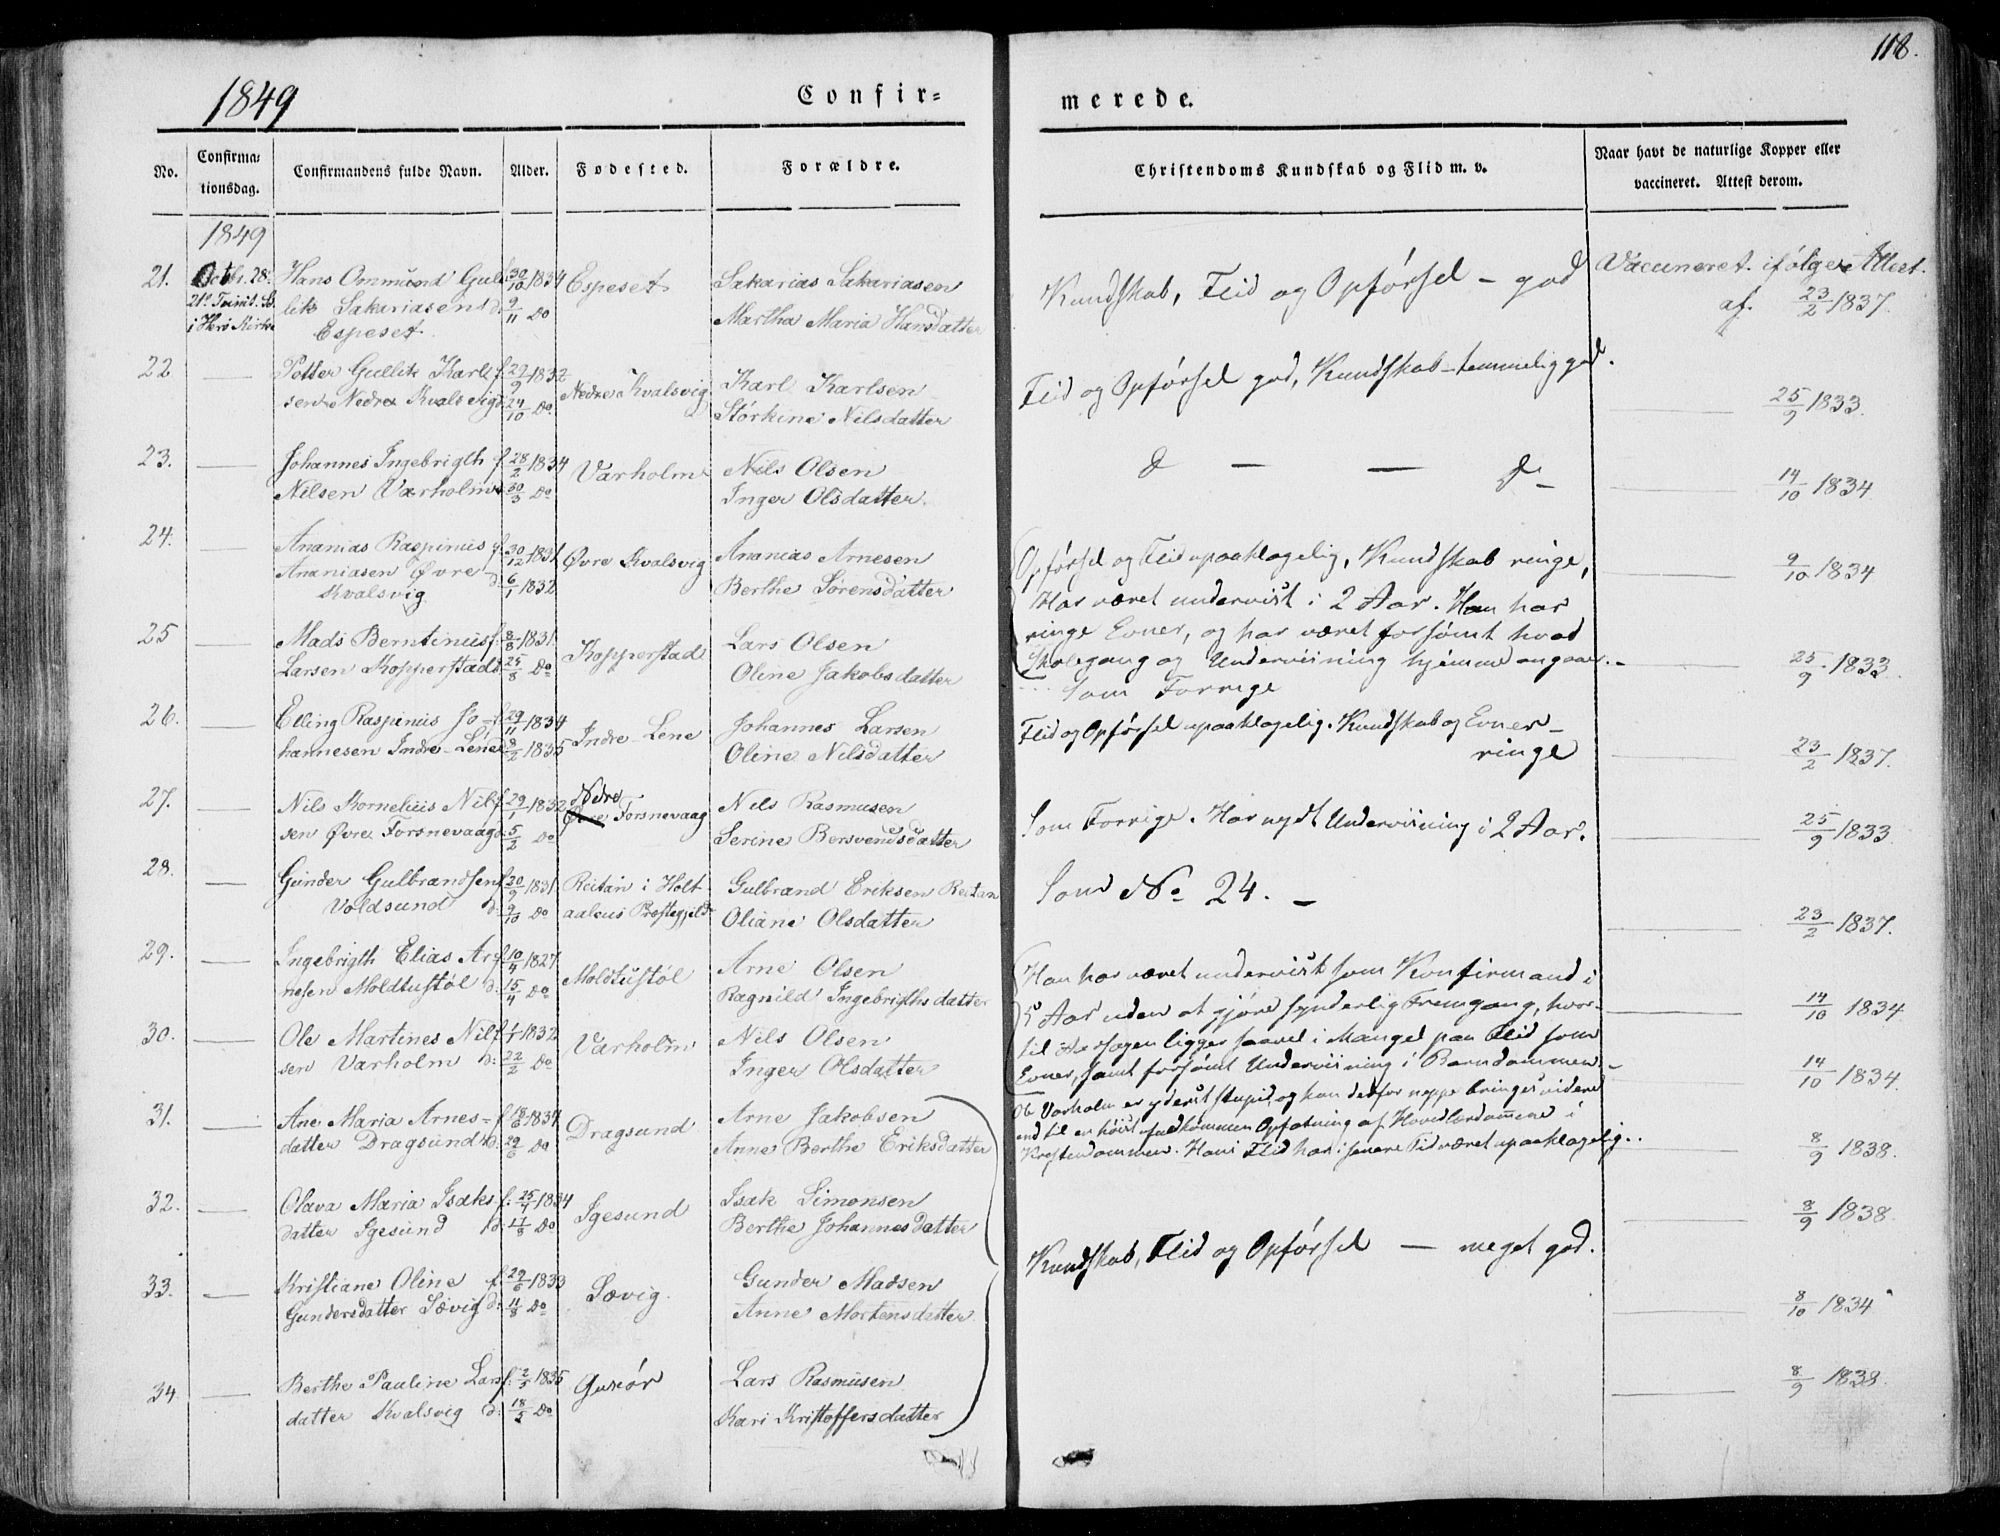 118.
1849
Confir=
merede.
No.
Confirma=
tionsdag.
Confirmandens fulde Navn.
Alder.
Fødested.
Forældre.
Christendoms Kundskab og Flid m. v.
Naar havt de naturlige Kopper eller
vaccineret. Attest derom.
1849
21. Octbr. 28. Hans Ommund Gul f. 30/10 1834 Espeset Sakarias Sakariasen
21de Trinit. S. lik Sakariasen d: 9/11 Do Martha Maria Hansdatter
i Herø Kirke Espeset
Kundskab, Flid og Opførsel - god
Vaccineret ifølge Attest
af. 23/2 1837.
22 Petter Gullik Karl f. 29/9 1832 Nedre Kvalsvig Karl Karlsen
sen Nedre Kvalsvig d: 24/10 Do Størkine Nilsdatter
Flid og Opførsel god, Kundskab temmelig god.
25/9 1833.
23. Johannes Ingebrigth f. 28/2 1834 Varholm Nils Olsen
Nilsen Varholm 30/3 Do Inger Olsdatter.
d — — d-
14/10 1834
24. Ananias Raspinus f. 30/12 1831 Øvre Kvalsvig Ananias Arnesen
Ananiasen Øvre d. 6/1 1832 Berthe Sørensdatter
Kvalsvig
Opførsel og Flid upaaklagelig, Kundskab ringe,
Har været undervist i 2 Aar. Han har
ringe Evner, og har været forsømt hvad
Skolegang og Underviisning hjemme angaaer.
9/10 1834
25 Mads Berntinus f. 8/8 1831 Kopperstad Lars Olsen
Larsen Kopperstad d. 25/8 Do Oline Jakobsdatter
Som Forrige
25/9 1833
26. Elling Raspinus Jo- f. 29/11 1834 Indre-Lene Johannes Larsen
hannesen Indre-Lene 8/2 1835 Oline Nilsdatter
Flid og Opførsel upaaklagelig. Kundskab og Evner
ringe
23/2 1837.
27. Nils Kornelius Nil f. 29/1 1832 Nedre
Øvre Forsnevaag Nils Rasmusen
sen Øvre Forsnevaag d: 5/2 Do Serine Bersvendsdatter
Som Forrige. Har nydt Underviisning i 2 Aar.
25/9 1833
28. Gunder Gulbrandsen f. 30/9 1831 Reitan i Holt Gulbrand Eriksen Reitan
Voldsund d: 9/10 Do aalens Præstegjeld Oliane Olsdatter
Som No 24.
23/2 1837.
29. Ingebrigth Elias Ar f. 10/4 1827 Moldtustøl Arne Olsen
nesen Moldtustøl d: 15/4 Do Ragnild Ingebrigthsdatter
Han har været undervist som Konfirmand i
5 Aar uden at gjøre synderlig Fremgang, hvor-
til Aarsagen ligger saavel i Mangel paa Flid som
Evner, samt forsømt Underviisning i Barndommen.
14/10 1834
30. Ole Martines Nil f. 1/1 1832 Varholm Nils Olsen
sen Varholm d: 22/2 Do Inger Olsdatter
Ole Varholm er yderst stupid, og kan derfor neppe bringes videre
end til en høist ufuldkommen Opfatning af Hovedlærdommene i
Kristendommen. Hans Flid har i senere Tid været upaaklagelig.
14/10 1834.
31. Ane Maria Arnes- f. 18/6 1834 Dragsund Arne Jakobsen
datter Dragsund d. 29/6 Do Anne Berthe Eriksdatter
8/9 1838.
32. Olava Maria Isaks f. 25/4 1834 Igesund Isak Simonsen
datter Igesund d. Do Berthe Johannesdatter
8/9 1838.
Kundskab, Flid og Opførsel — meget god.
33. Kristiane Oline f. 29/6 1833 Sævig. Gunder Madsen
Gundersdatter Sævig d. 11/8 Do Anne Mortensdatter.
8/10 1834
34. Berthe Pauline Lars f. 2/5 1835 Gurør Lars Rasmusen
datter Kvalsvig d: 18/5 Do Kari Kristoffersdatter
8/9 1838.